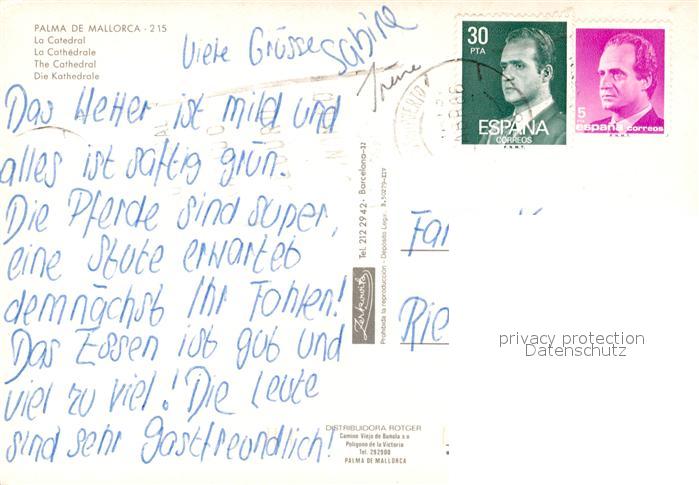 PALMA DE MALLORCA - 215
La Catedral
La Cathédrale
The Cathedral
Die Kathedrale
Viele Grüsse Sabine
Irene
Das Wetter ist mild und
alles ist saftig grün.
Die Pferde sind super,
eine Stute erwartet
demnächst Ihr Fohlen!
Das Essen ist gut und
viel zu viel! Die Leute
sind sehr gastfreundlich!
30
PTA
ESPAÑA
CORREOS
F.N.M.T.
5
PTA
españa correos
F.N.M.T.
AEROPUERTO
Tel. 212 29 42 - Barcelona-32
Zerkowitz
Prohibida la reproducción - Depósito Legal B.
Fa
Rie
privacy protection
Datenschutz
DISTRIBUIDORA ROTGER
Camino Viejo de Buñola s/n
Polígono de la Victoria
Tel. 292900
PALMA DE MALLORCA